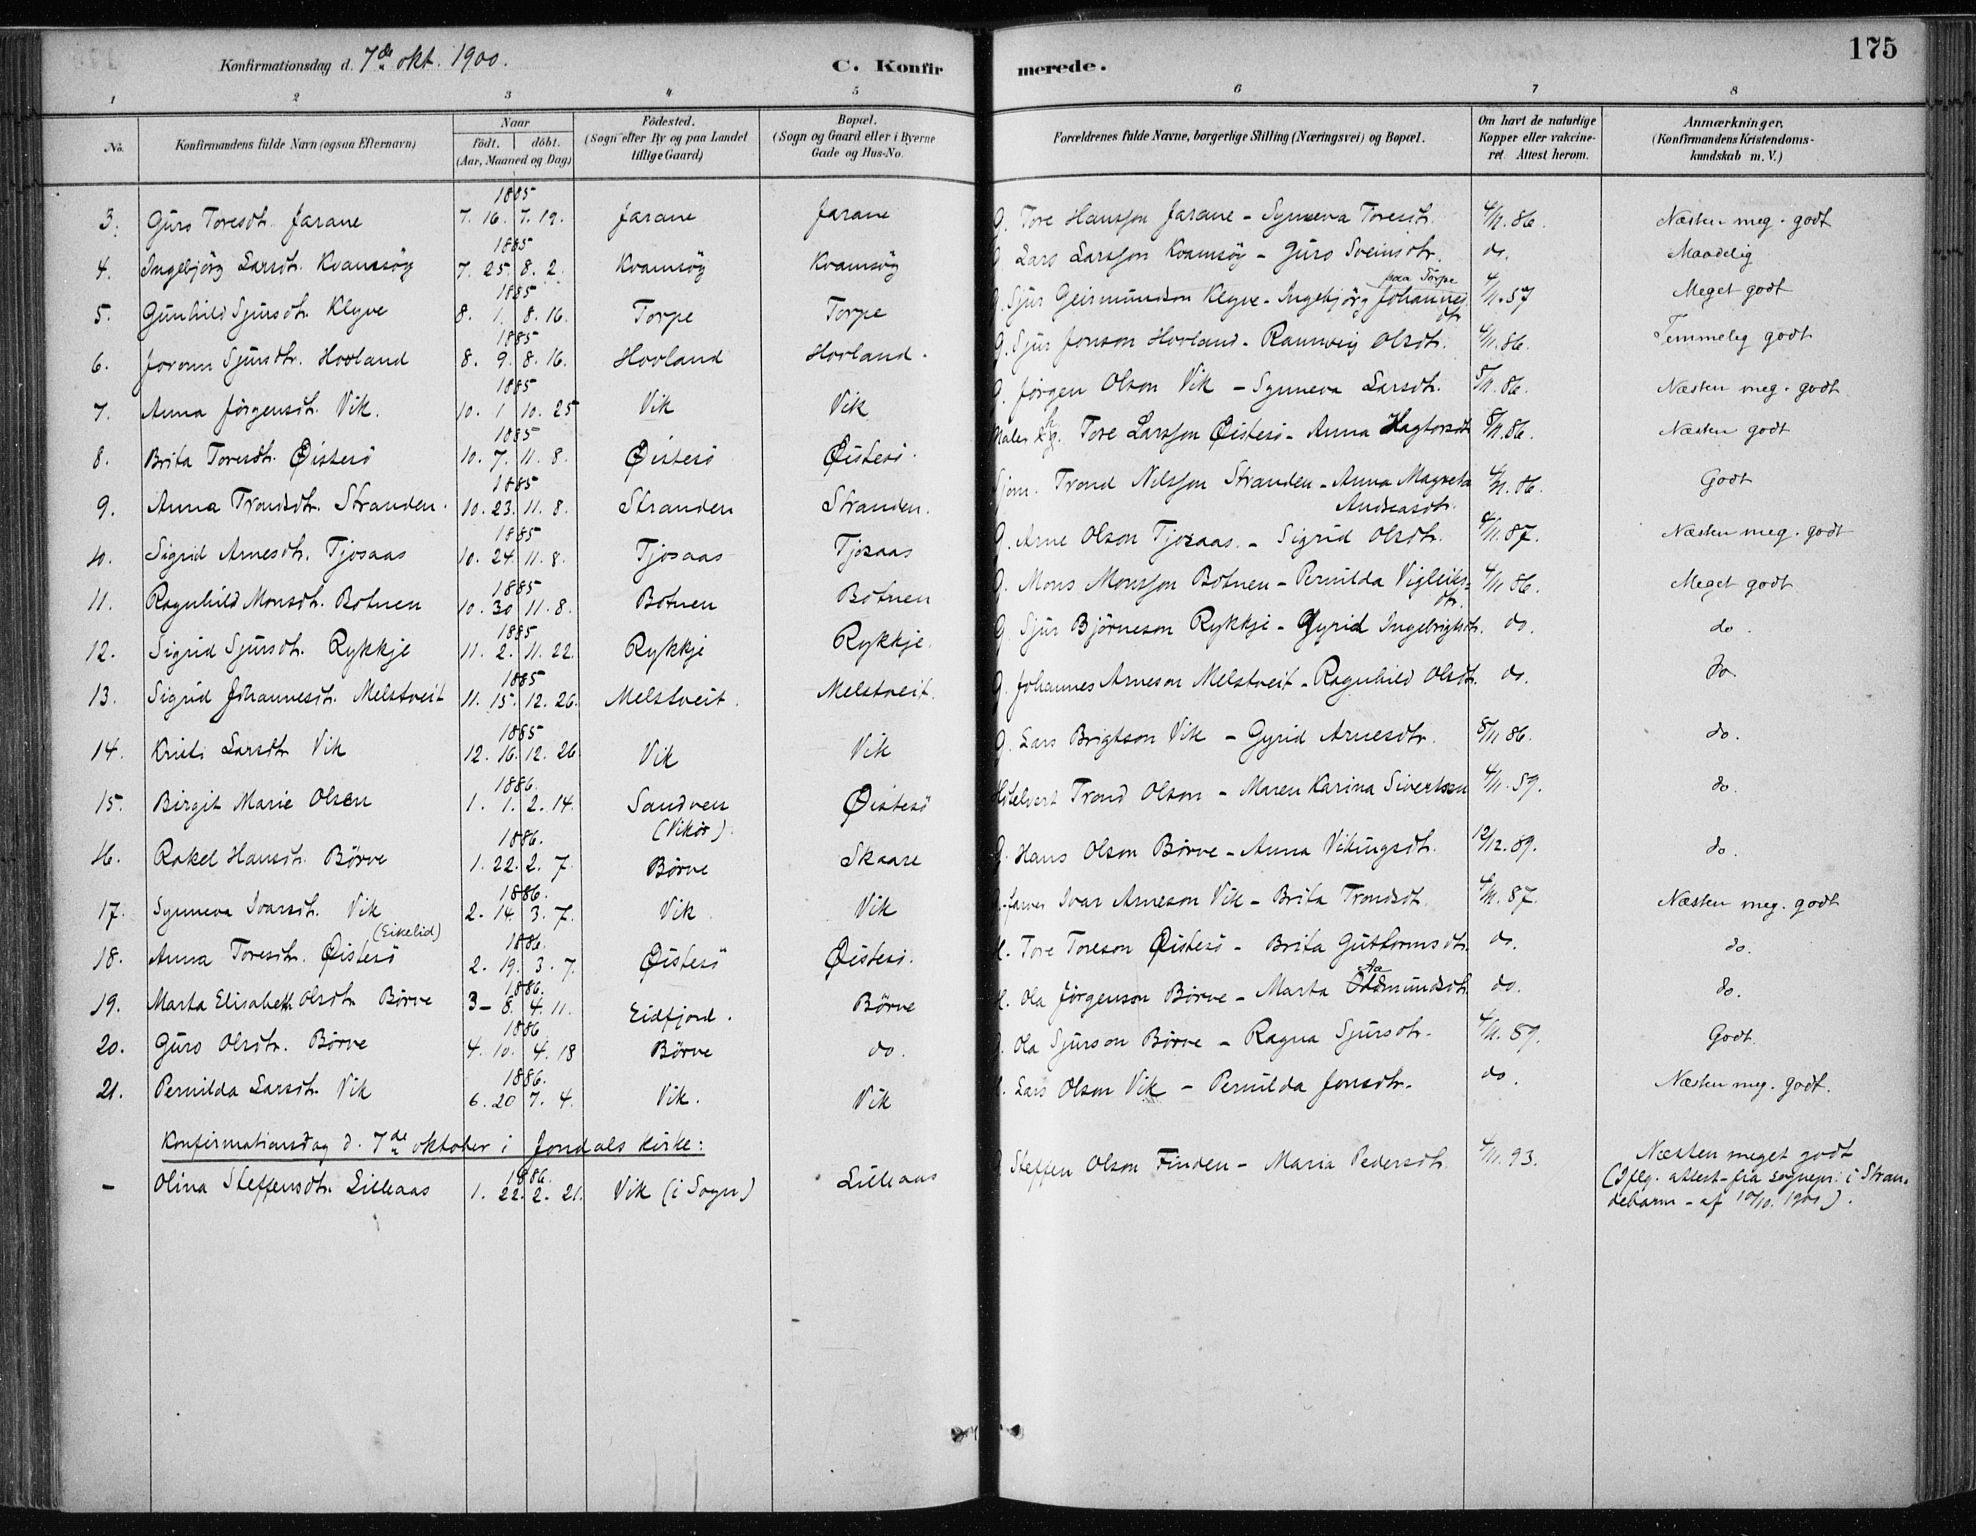 Konfirmationsdag d. 7de okt. 1900. C. Konfirmerede. 175
1 2 3 4 5 6 7 8
No. Konfirmandens fulde Navn (ogsaa Efternavn) Naar födt. döbt. (Aar, Maaned og Dag) Födested. (Sogn efter By og paa Landet tillige Gaard) Bopæl. (Sogn og Gaard eller i Byerne Gade og Hus-No. Forældrenes fulde Navne, borgerlige Stilling (Næringsvei) og Bopæl. Om havt de naturlige Kopper eller vakcineret. Attest herom. Anmærkninger. (Konfirmandens Kristendomskundskab m. V.)
1885
3. Guro Toresdtr. Jarane 7. 16. 7. 19. Jarane Jarane G. Tore Hansson Jarane - Synneva Toresdtr. 4/11. 86. Næsten meg. godt
1885
4. Ingebjörg Larsdtr. Kvamsöy 7. 25 8. 2. Kvamsöy Kvamsöy G. Lars Larsson Kvamsöy - Guro Sveinsdtr. do. Maadelig
1885 paa Torpe
5. Gunhild Sjursdtr. Klyve 8. 1. 8. 16. Torpe Torpe G. Sjur Geirmundson Klyve - Ingebjörg Johannesdtr. 4/11. 87 Meget godt
1885
6. Jorunn Sjursdtr. Hovland 8. 9. 8. 16. Hovland Hovland. G. Sjur Jonson Hovland - Rannveig Olsdtr. 4/11. 86. Temmeleg godt
1885
7. Anna Jörgensdtr. Vik. 10. 1 10. 25 Vik Vik G. Jörgen Olson Vik - Synneva Larsdtr. 5/11. 86. Næsten meg. godt
1885
8. Brita Toresdtr. Øistesö 10. 7. 11. 8. Øistesö Øistesö. Maler Tore Larsson Øistesö - Anna Hagtorsdtr 8/11. 86. Næsten godt
1885
9. Anna Trondsdtr. Stranden. 10. 23. 11. 8. Stranden Stranden. Sjöm. Trond Nilsson Stranden - Anna Magreta Andreasdtr. 4/11. 86. Godt
1885
10. Sigrid Arnesdtr. Tjosaas 10. 24. 11. 8. Tjosaas Tjosaas G. Arne Olson Tjosaas. - Sigrid Olsdtr. 4/11. 87. Næsten meg. godt
1885
11. Ragnhild Monsdtr. Botnen 10. 30 11. 8. Botnen Botnen G. Mons Monsson Botnen - Pernilda Vigleiksdtr. 4/11 86. Meget godt
1885
12. Sigrid Sjursdtr. Rykkje 11. 2. 11. 22. Rykkje Rykkje. G. Sjur Björneson Rykkje - Gyrid Ingebrigtsdtr. do. do.
1885
13. Sigrid Johannesdtr. Melstveit 11. 15. 12. 26. Melstveit. Melstveit. G. Johannes Arneson Melstveit - Ragnhild Olsdtr. do. do.
1885
14. Kristi Larsdtr Vik 12. 16. 12. 26 Vik Vik G. Lars Brigtson Vik - Gyrid Arnesdtr. 8/11 86. do.
1886.
15. Birgit Marie Olsen 1. 1. 2. 14. Sandven (Vikör). Øistesö Hotelvert Trond Olson - Maren Karina Sivertsen 4/11. 89. do.
1886.
16. Rakel Hansdtr. Börve 1. 22. 2. 7. Börve Skaare G. Hans Olson Börve - Anna Vikingsdtr. 12/12. 89. do.
1886.
17. Synneva Ivarsdtr. Vik 2. 14. 3. 7. Vik Vik Ivar Arneson Vik - Brita Trondsdtr. 4/11. 87. Næsten meg. godt
(Eikelid) 1886.
18. Anna Toresdtr. Øistesö 2. 19. 3. 7. Øistesö Øistesö. Tore Toreson Øistesö - Brita Guttormsdtr. do. do.
1886.
19. Marta Elisabeth Olsdtr Börve 3 - 8. 4. 11. Eidfjord. Börve Ola Jörgenson Börve - Marta Aamundsdtr. do. do.
1886
20. Guro Olsdtr. Börve 4. 10. 4. 18 Börve do. Ola Sjurson Börve - Ragna Sjursdtr. 4/11. 89. Godt.
1886.
21. Pernilda Larsdtr. Vik 6. 20 7. 4. Vik. Vik Lars Olson Vik - Pernilda Jonsdtr. do. Næsten meg. godt.
Konfirmationsdag d. 7de oktober i Jondals kirke:
1886.
- Olina Steffensdtr. Lilleaas 1. 22. 2. 21. Vik (i Sogn) Lilleaas Steffen Olson Finden - Maria Pedersdtr. 4/11. 93. Næsten meget godt
(Iflg. attest fra sognepr. i Strandebarm - af 10/10. 1900).